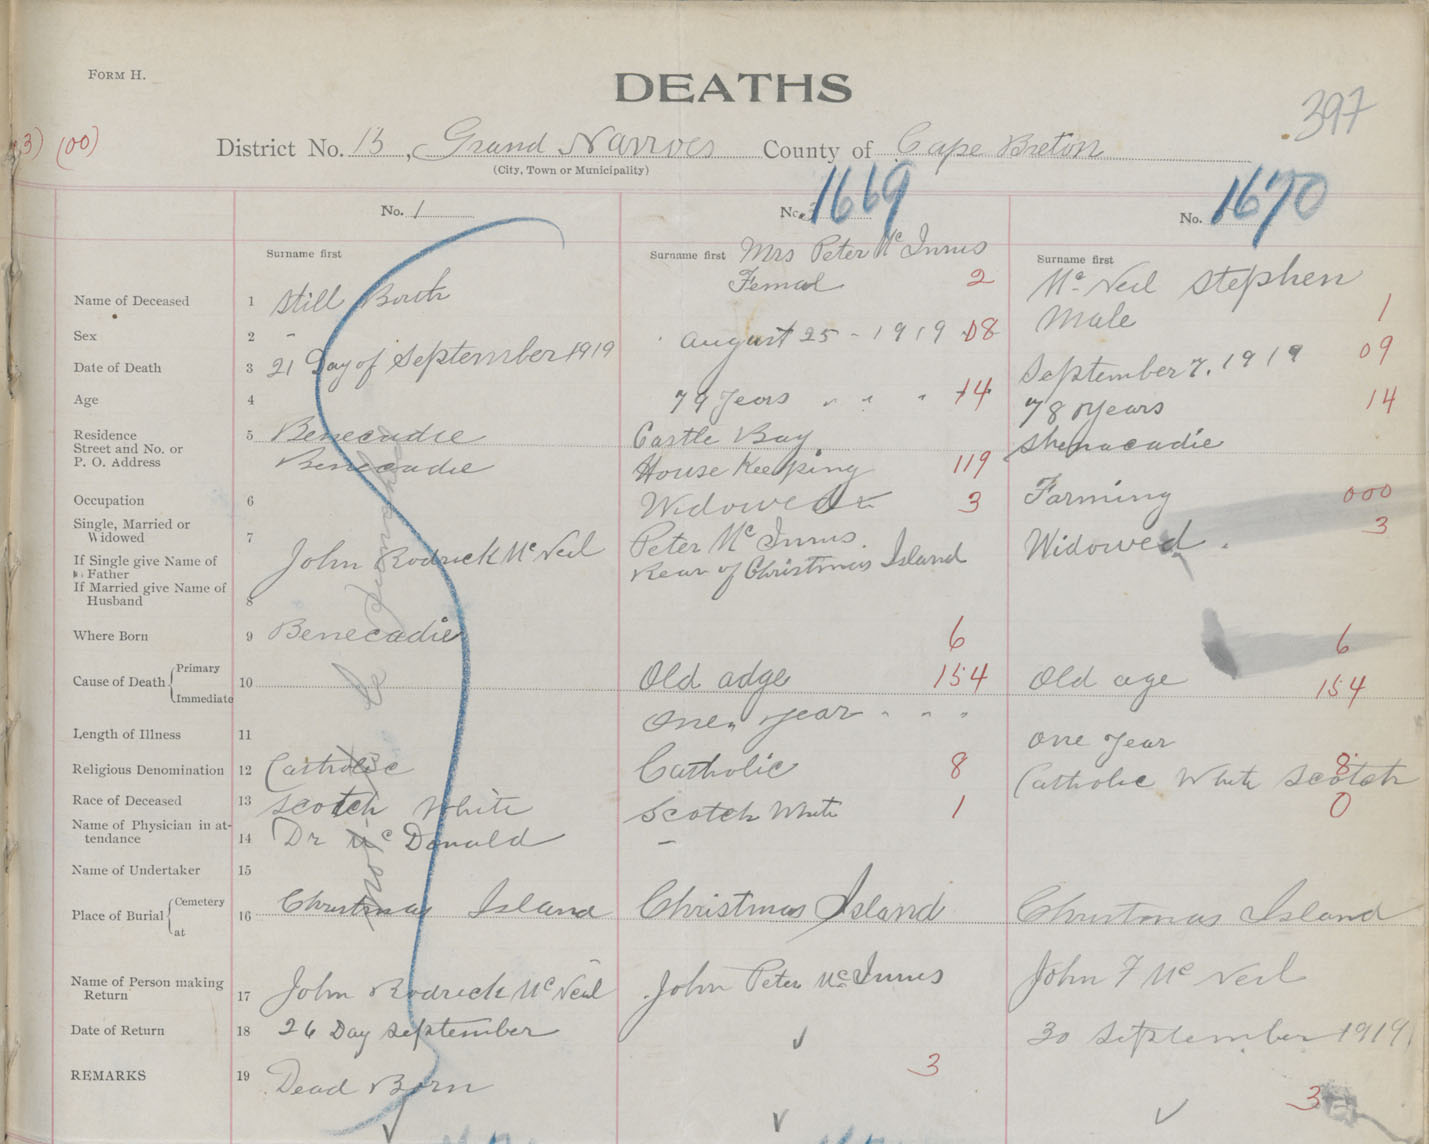 FORM H.
DEATHS
397
3) (00)
District No. 13, Grand Narroes County of Cape Breton
(City, Town or Municipality)
No. 1
No. 3 1669
No. 1670
Surname first
Surname first Mrs Peter Mc Innis
Surname first
Name of Deceased 1 Still Borth
Femal 2
Mc Neil Stephen
Sex 2 -
August 25 - 1919 08
Male 1
Date of Death 3 21 Day of September 1919
79 Years " " " 14
September 7. 1919 09
Age 4
78 Years 14
Residence
Street and No. or
P. O. Address
5 Benecadie
Benecadie
Castle Bay
House Keeping 119
Shenacadie
Occupation 6
Widowed 3
Farming 000
Single, Married or
Widowed
7
Peter Mc Innis
Widowed. 3
If Single give Name of
Father
If Married give Name of
Husband
8
John Rodrick Mc Neil
Rear of Christmas Island
Where Born 9 Benecadie
6
6
Cause of Death Primary
Immediate
10
Old adge 154
Old age 154
Length of Illness 11
One year " " "
One Year
Religious Denomination 12 Catholic
Catholic 8
Catholic White Scotch 8
Race of Deceased 13 Scotch White
Scotch White 1
0
Name of Physician in at-
tendance
14 Dr Mc Donald
-
Name of Undertaker 15
Place of Burial Cemetery
at
16 Christmas Island
Christmas Island
Christmas Island
Name of Person making
Return
17 John Rodrick Mc Neil
John Peter Mc Innis
John F Mc Neil
Date of Return 18 26 Day September
30 September 1919
REMARKS 19 Dead Born
3
3
Not to be